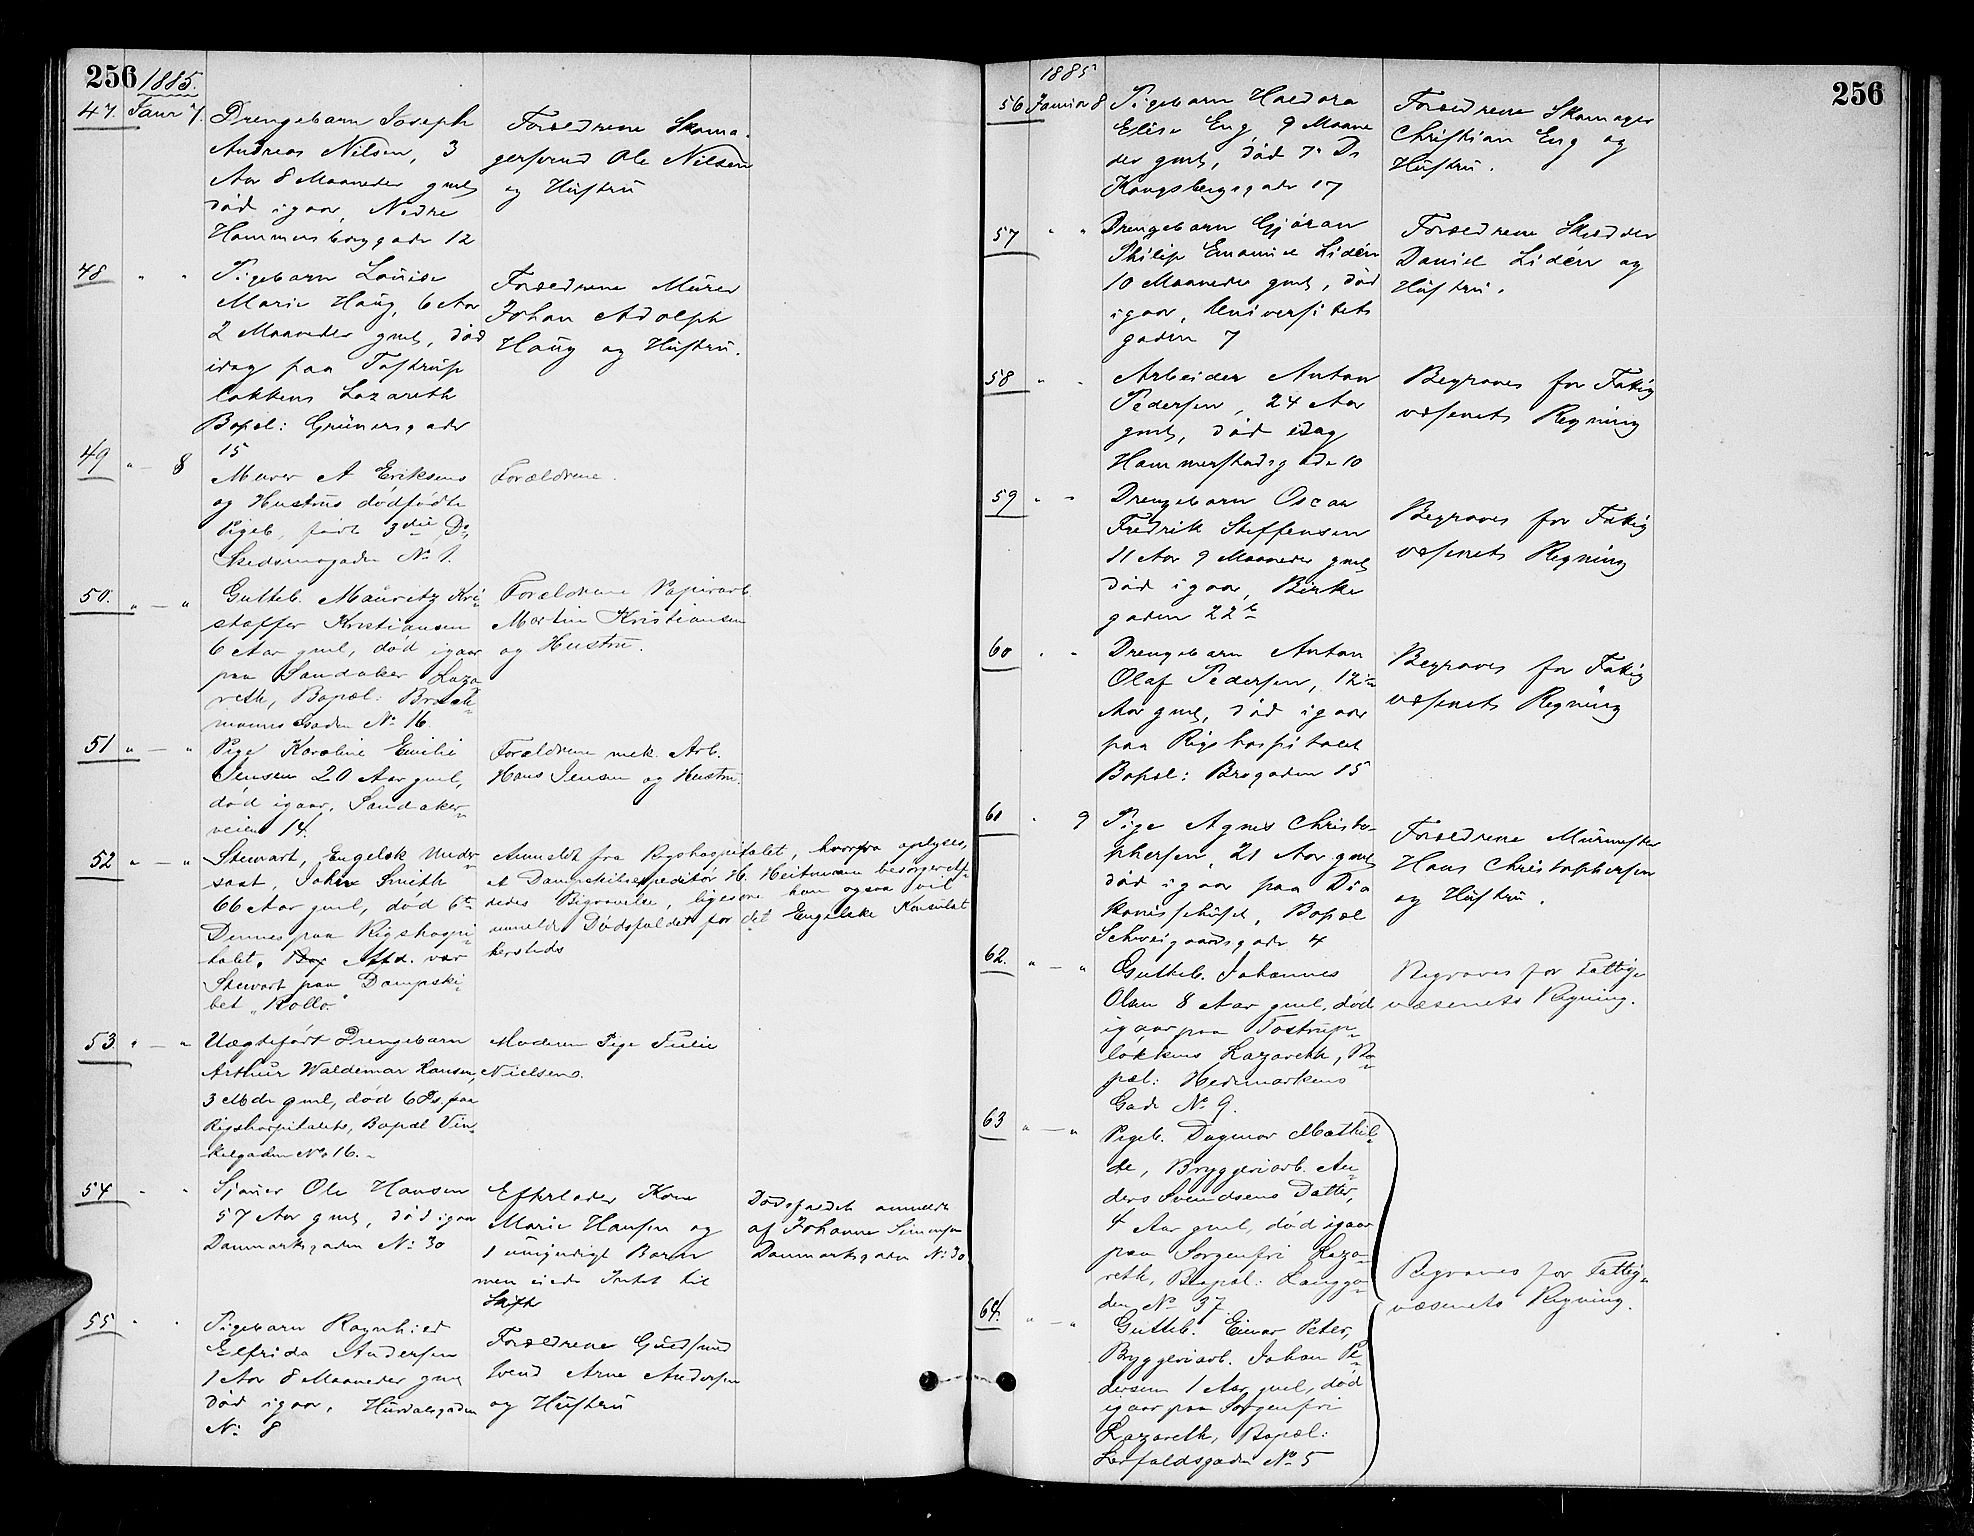 256 1885.
47. Janr 7. Drengebarn Joseph
Andreas Nilsen, 3
Aar 8 Maaneder gml
død igaar, Nedre
Hammersborggade 12
Forældrene Skoma-
gersvend Ole Nilsen
og Hustru
48 " " Pigebarn Louise
Marie Haug, 6 Aar
2 Maaneder gml, død
idag paa Tostrup
løkkens Lazareth
Bopæl: Grünersgade
15
Forældrene Murer
Johan Adolph
Haug og Hustru.
49 " — 8 Murer A Eriksens
og Hustrus dødfødte
Pigeb, født 3die Ds
Skedsmogaden No 1.
Forældrene.
50. " — " Gutteb. Mauritz Kri-
stoffer Kristiansen
6 Aar gml, død igaar
paa Sandaker Laza-
reth, Bopæl:
manns Gaden No 16.
Forældrene Papirarb
Martin Kristiansen
og Hustru.
51 " — " Pige Karoline Emilie
Jensen 20 Aar gml,
død igaar, Sandaker-
veien 14.
Forældrene mek. Arb.
Hans Jensen og Hustru.
52 " — " Stewart, Engelsk Under
saat, John Smith
66 Aar gml, død 6te
Dennes paa Rigshospi-
talet. Bop Afd. var
Stewart paa Dampski-
bet "Rollo."
Anmeldt fra Rigshospitalet, hvorfra oplyses,
at Dampskibsexpeditør H. Heitmann besørger
dedes Begravelse, ligesom han ogsaa vil
anmelde Dødsfaldet for det Engelske Konsulat
hersteds
53. " — " Uægtefødt Drengebarn
Arthur Waldemar Hansen,
3 Mdr gml, død 6 Ds. paa
Rigshospitalet, Bopæl Vin-
kelgaden No 16.-
Moderen Pige Julie
Nielsen.
54 " " Sjauer Ole Hansen
57 Aar gml, død igaar
Danmarksgaden No 30
Efterlader Kone
Marie Hansen og
1 umyndigt Barn
men eiede Intet til
Skifte
Dødsfaldet anmeldt
af Johanne Simensen
Danmarksgaden No 30
55 " " Pigebarn Ragnhild
Elfrida Andersen
1 Aar 8 Maaneder gml
død igaar, Hurdalsgaden
No 8
Forældrene Guldsmed
svend Arne Andersen
og Hustru
1885 256
56 Januar 8 Pigebarn Haldora
Elise Eng, 9 Maane
der gml, død 7de Ds
Kongsbergsgade 17
Forældrene Skomager
Christian Eng og
Hustru.
57 " " Drengebarn Gjøran
Philip Emanuel Lidén
10 Maaneder gml, død
igaar, Universitets
gaden 7
Forældrene Skrædder
Daniel Lidén og
Hustru.
58 " " Arbeider Anton
Pedersen, 24 Aar
gml, død idag
Hammerstadsgade 10
Begraves for Fattig
væsenets Regning
59 " " Drengebarn Oscar
Fredrik Steffensen
11 Aar 9 Maaneder gml
død igaar, Birke
gaden 22b
Begraves for Fattig
væsenets Regning
60 " " Drengebarn Anton
Olaf Pedersen, 12
Aar gml, død igaar
paa Rigshospitalet
Bopæl: Brogaden 15
Begraves for Fattig
væsenets Regning
61 " 9 Pige Agnes Christo-
phersen, 21 Aar gml
død igaar paa Dia
konissehuset, Bopæl
Schweigaardsgade 4
Forældrene Murmester
Hans Christophersen
og Hustru.
62. " — " Gutteb. Johannes
Olsen 8 Aar gml, død
igaar paa Tostrup-
løkkens Lazareth, Bo-
pæl: Hedemarkens
Gade No 9.
Begraves for Fattig-
væsenets Regning.
63 " — " Pigeb. Dagmar Mathil-
de, Bryggeriarb. An-
ders Svendsens Datter,
4 Aar gml, død igaar
paa Sorgenfri Laza-
reth, Bopæl: Langga-
den No 37
64. " — " Gutteb. Einar Peter,
Bryggeriarb. Johan Pe-
dersen 1 Aar gml, død
igaar paa Sorgenfri
Lazareth, Bopæl:
Lerfaldsgaden No 5
Begraves for Fattig-
væsenets Regning.